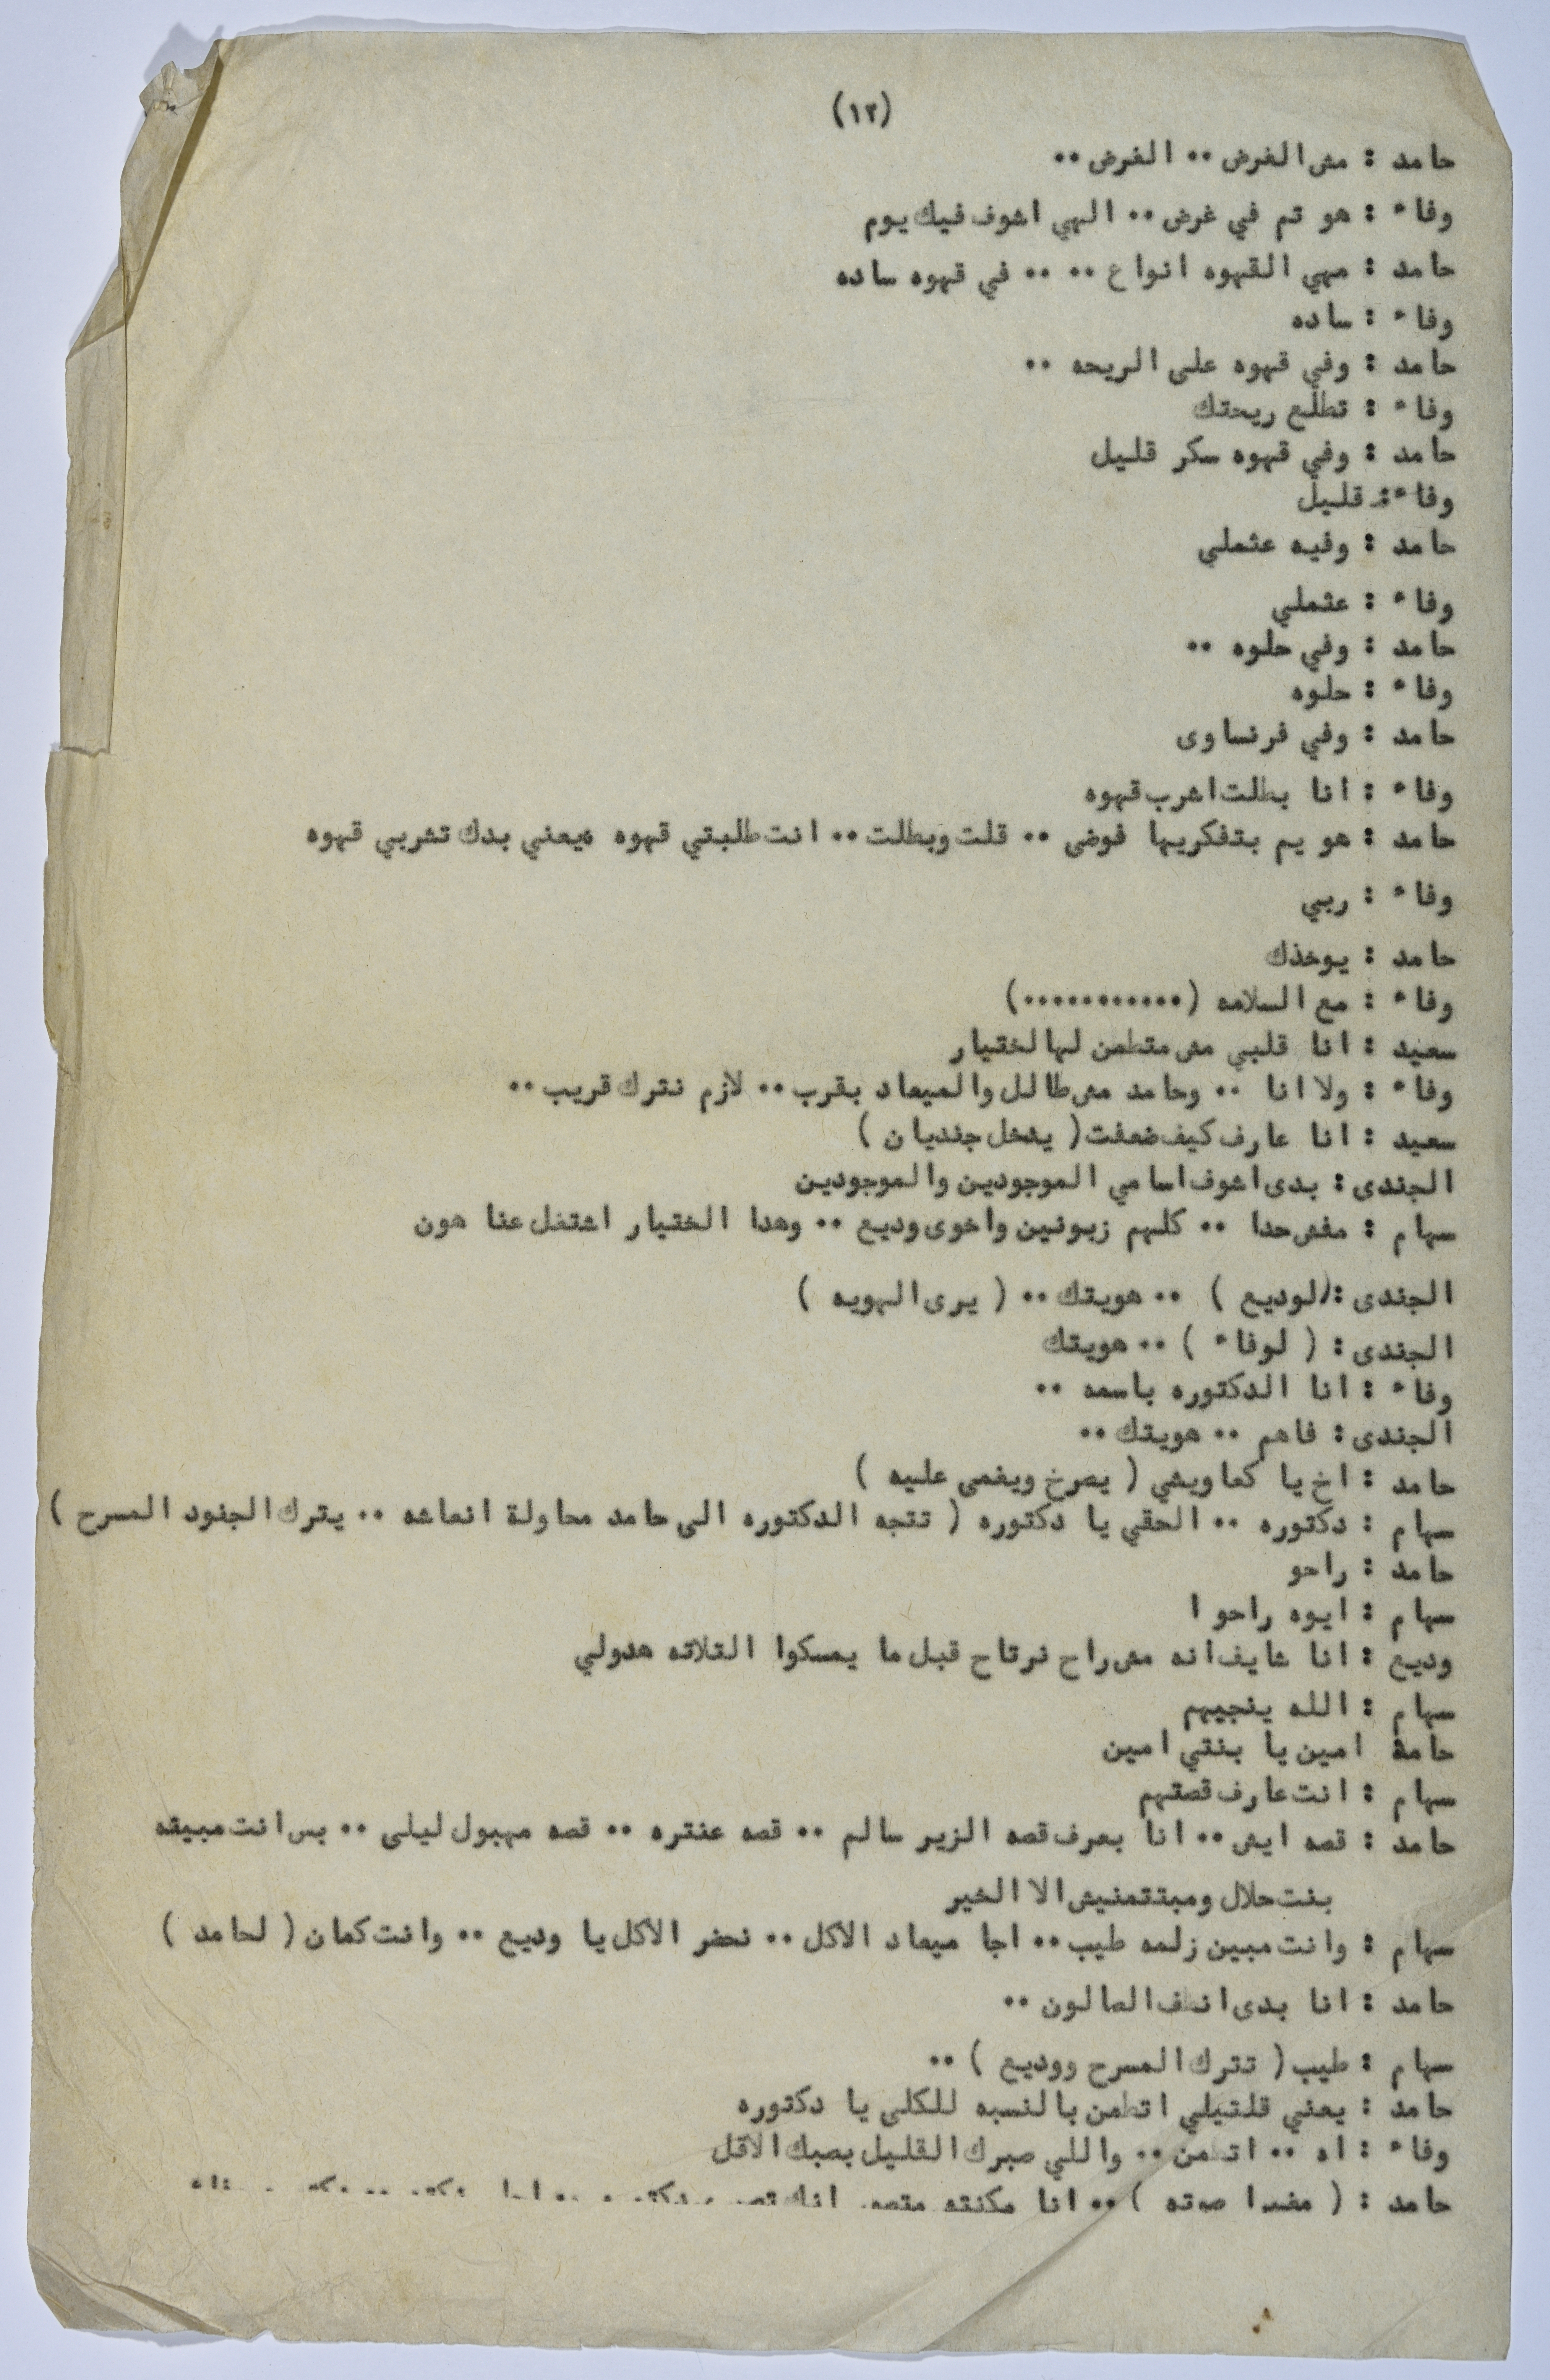 (١٢)
حامد : مش الغرض ٠٠ الغرض ٠٠
وفاء : هو تم في غرض ٠٠ الهي اشوف فيك يوم
حامد : مهي القهوه انواع ٠٠ ٠٠ في قهوه ساده
وفاء : ساده
حامد : وفي قهوه على الريحه ٠٠
وفاء : تطلع ريحتك
حامد : وفي قهوه سكر قليل
وفاء : قليل
حامد : وفيه عثملي
وفاء : عثملي
حامد : وفي حلوه ٠٠
وفاء : حلوه
حامد : وفي فرنساوى
وفاء : انا بطلت اشرب قهوه
حامد : هو يم بتفكريها فوضى ٠٠ قلت وبطلت ٠٠ انت طلبتي قهوه ،يعني بدك تشربي قهوه
وفاء : ربي
حامد : يوخذك
وفاء : مع السلامه (٠٠٠٠٠٠٠٠٠٠٠)
سعيد : انا قلبي مش متطمن لهالختيار
وفاء : ولا انا ٠٠ وحامد مش طالل والميعاد بقرب ٠٠ لازم نترك قريب ٠٠
سعيد : انا عارف كيف ضعفت ( يدخل جنديان )
الجندى : بدى اشوف اسامي الموجودين والموجودين
سهام : مفش حدا ٠٠ كلهم زبونين واخوى وديع ٠٠ وهدا الختيار اشتغل عنا هون
الجندى :(لوديع ) ٠٠ هويتك ٠٠ ( يرى الهويه )
الجندى : ( لوفاء ) ٠٠ هويتك
وفاء : انا الدكتوره باسمه ٠٠
الجندى : فاهم ٠٠ هويتك ٠٠
حامد : اخ يا كعاويشي ( يصرخ ويغمى عليه )
سهام : دكتوره ٠٠ الحقي يا دكتوره ( تتجه الدكتوره الى حامد محاولة انعاشه ٠٠ يترك الجنود المسرح )
حامد : راحو
سهام : ايوه راحوا
وديع : انا شايف انه مش راح نرتاح قبل ما يمسكوا التلاته هدولي
سهام : الله ينجيهم
حامد امين يا بنتي امين
سهام : انت عارف قصتهم
حامد : قصه ايش ٠٠ انا بعرف قصه الزير سالم ٠٠ قصه عنتره ٠٠ قصه مهبول ليلى ٠٠ بس انت مبيقه
بنت حلال ومبتتمنيش الا الخير
سهام : وانت مبين زلمه طيب ٠٠ اجا ميعاد الاكل ٠٠ نحضر الاكل يا وديع ٠٠ وانت كمان ( لحامد )
حامد : انا بدى انظف الصالون ٠٠
سهام : طيب ( تترك المسرح ووديع ) ٠٠
حامد : يعني قلتيلي اتطمن بالنسبه للكلى يا دكتوره
وفاء : اه ٠٠ اتطمن ٠٠ واللي صبرك القليل بصبك الاقل
حامد : ( مغيرا صوته ) ٠٠ انا مكنتش متصور انك